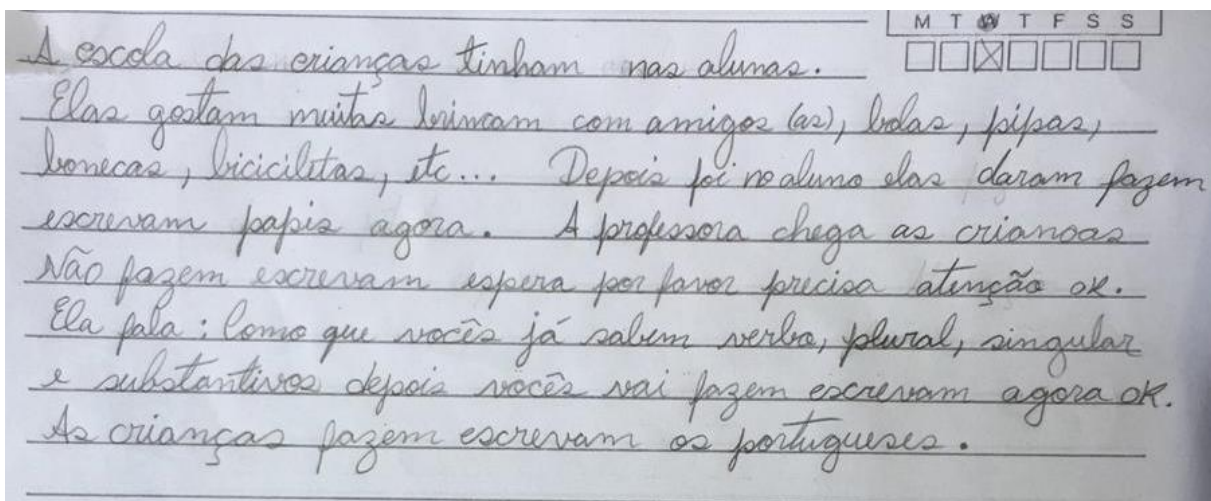 M T W T F S S
A escola das crianças tinham nas alunas.
Elas gostam muitas brincam com amigos (as), bolas, pipas,
bonecas, bicicilitas, etc... Depois foi no aluno elas daram fazem
escrevam papis agora. A professora chega as crianoas
Não fazem escrevam espera por favor precisa atenção ok.
Ela fala: Como que vocês já sabem verbo, plural, singular
e substantivos depois vocês vai fazem escrevam agora ok.
As crianças fazem escrevam os portugueses.